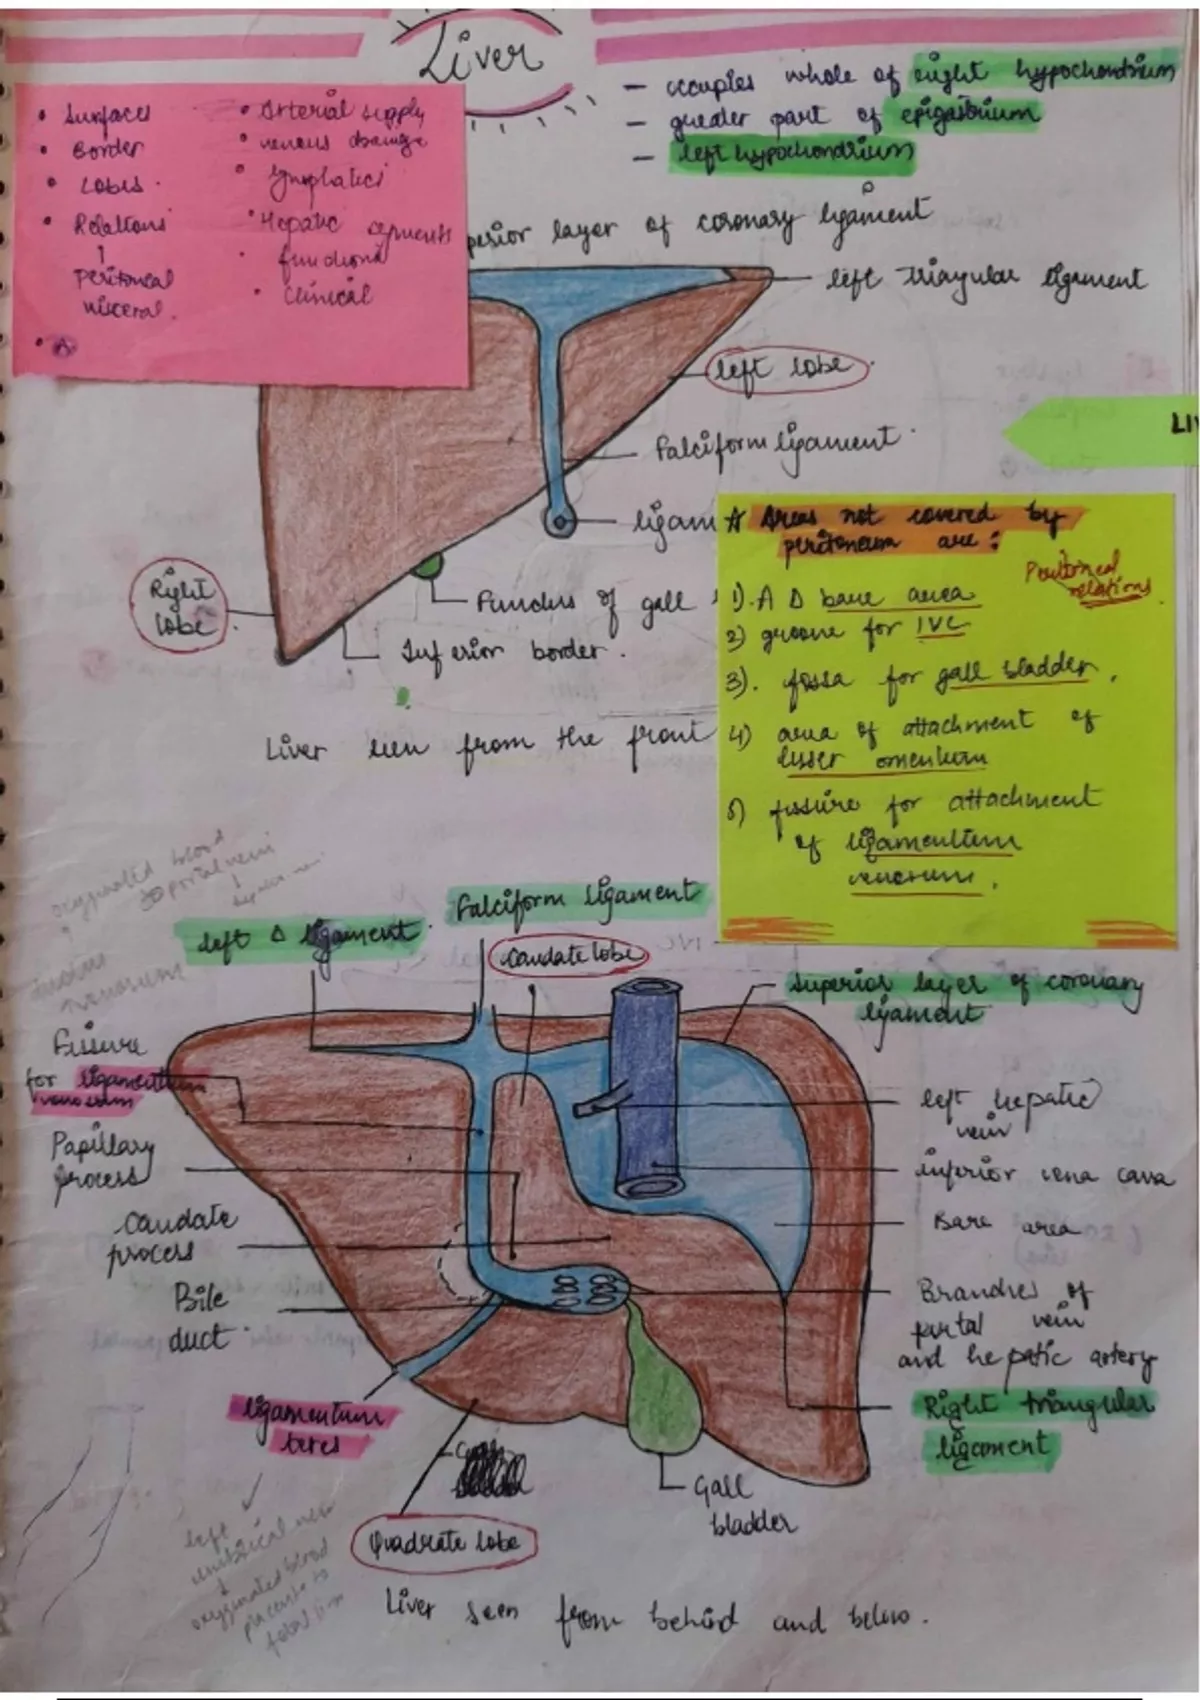 Liver
- occupies whole of right hypochondrium
- greater part of epigastrium
- left hypochondrium
• Surfaces
• Border
• Lobes.
• Relations
↓
Peritoneal
visceral.
• Arterial supply
• venous drainage
• lymphatics
• Hepatic segments
• functions
• Clinical
perior layer of coronary ligament
left triangular ligament
left lobe
Falciform ligament
ligam
Right
lobe
Fundus of gall
Inferior border.
Liver seen from the front
LI
☆ Areas not covered by
peritoneum are:
Peritoneal
relations
1). A Δ bare area
2) groove for IVC
3). fossa for gall bladder.
4) area of attachment of
lesser omentum
5) fissure for attachment
of ligamentum
venosum.
oxygenated blood
portal vein
↓
ductus
venosum
left Δ ligament
Falciform ligament
Caudate lobe
Superior layer of coronary
ligament
Fissure
for ligamentum
venosum
Papillary
process
Caudate
process
Bile
duct
ligamentum
teres
left hepatic
vein
inferior vena cava
Bare area
Branches of
portal vein
and hepatic artery
Right triangular
ligament
Gall
bladder
Quadrate lobe
left
umbilical vein
↓
oxygenated blood
placenta to
fetal
Liver seen from behind and below.